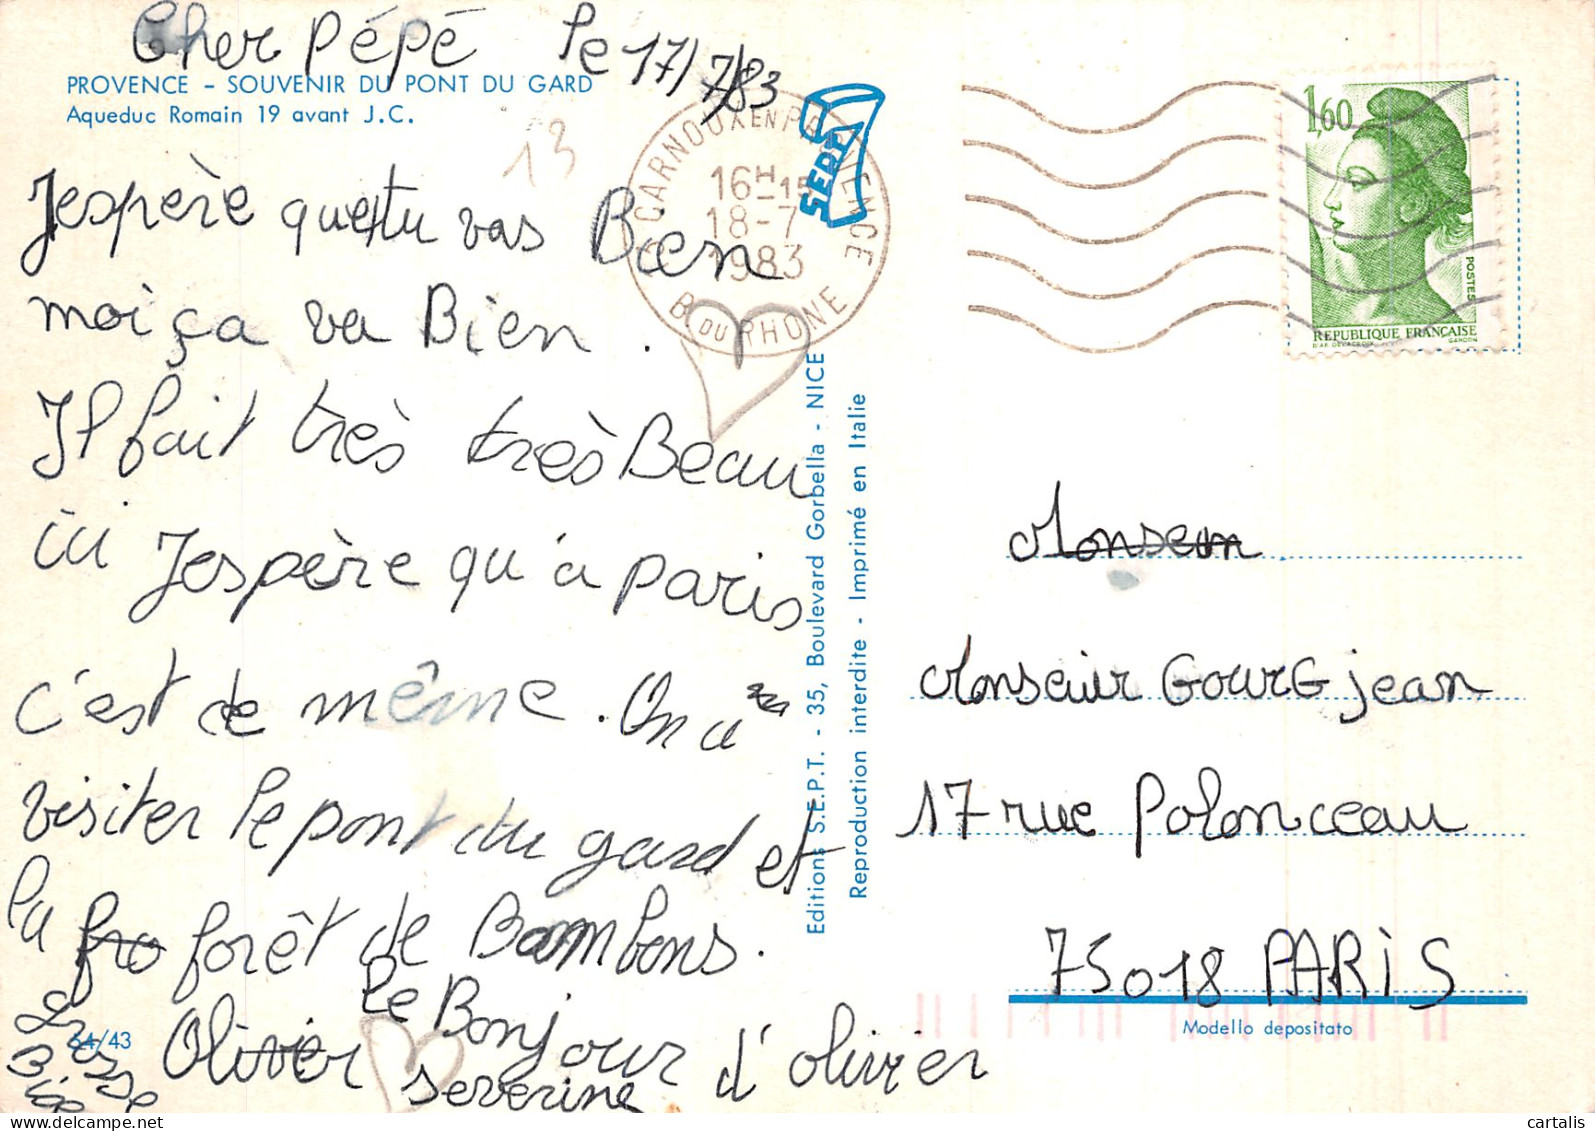 Cher pépé le 17/7/83
PROVENCE - SOUVENIR DU PONT DU GARD
Aqueduc Romain 19 avant J.C.
13
J'espère que tu vas Bien
moi ça va Bien.
Il fait très très Beau
ici J'espère qu'à paris
c'est de même. On a
visiter le pont du gard et
la fro forêt de Bambons.
le Bonjour d'olivier
Olivier
severine
Grosse
Bise
54/43
CARNOUX EN PROVENCE
16H15
18-7
1983
B. DU RHONE
SEPT
Editions S.E.P.T. - 35, Boulevard Gorbella - NICE
Reproduction interdite - Imprimé en Italie
1,60
POSTES
REPUBLIQUE FRANÇAISE
D'AP. DELACROIX GANDON
Monseur
Monseiur GourG jean
17 rue Polonceau
75018 PARiS
Modello depositato
cartalis